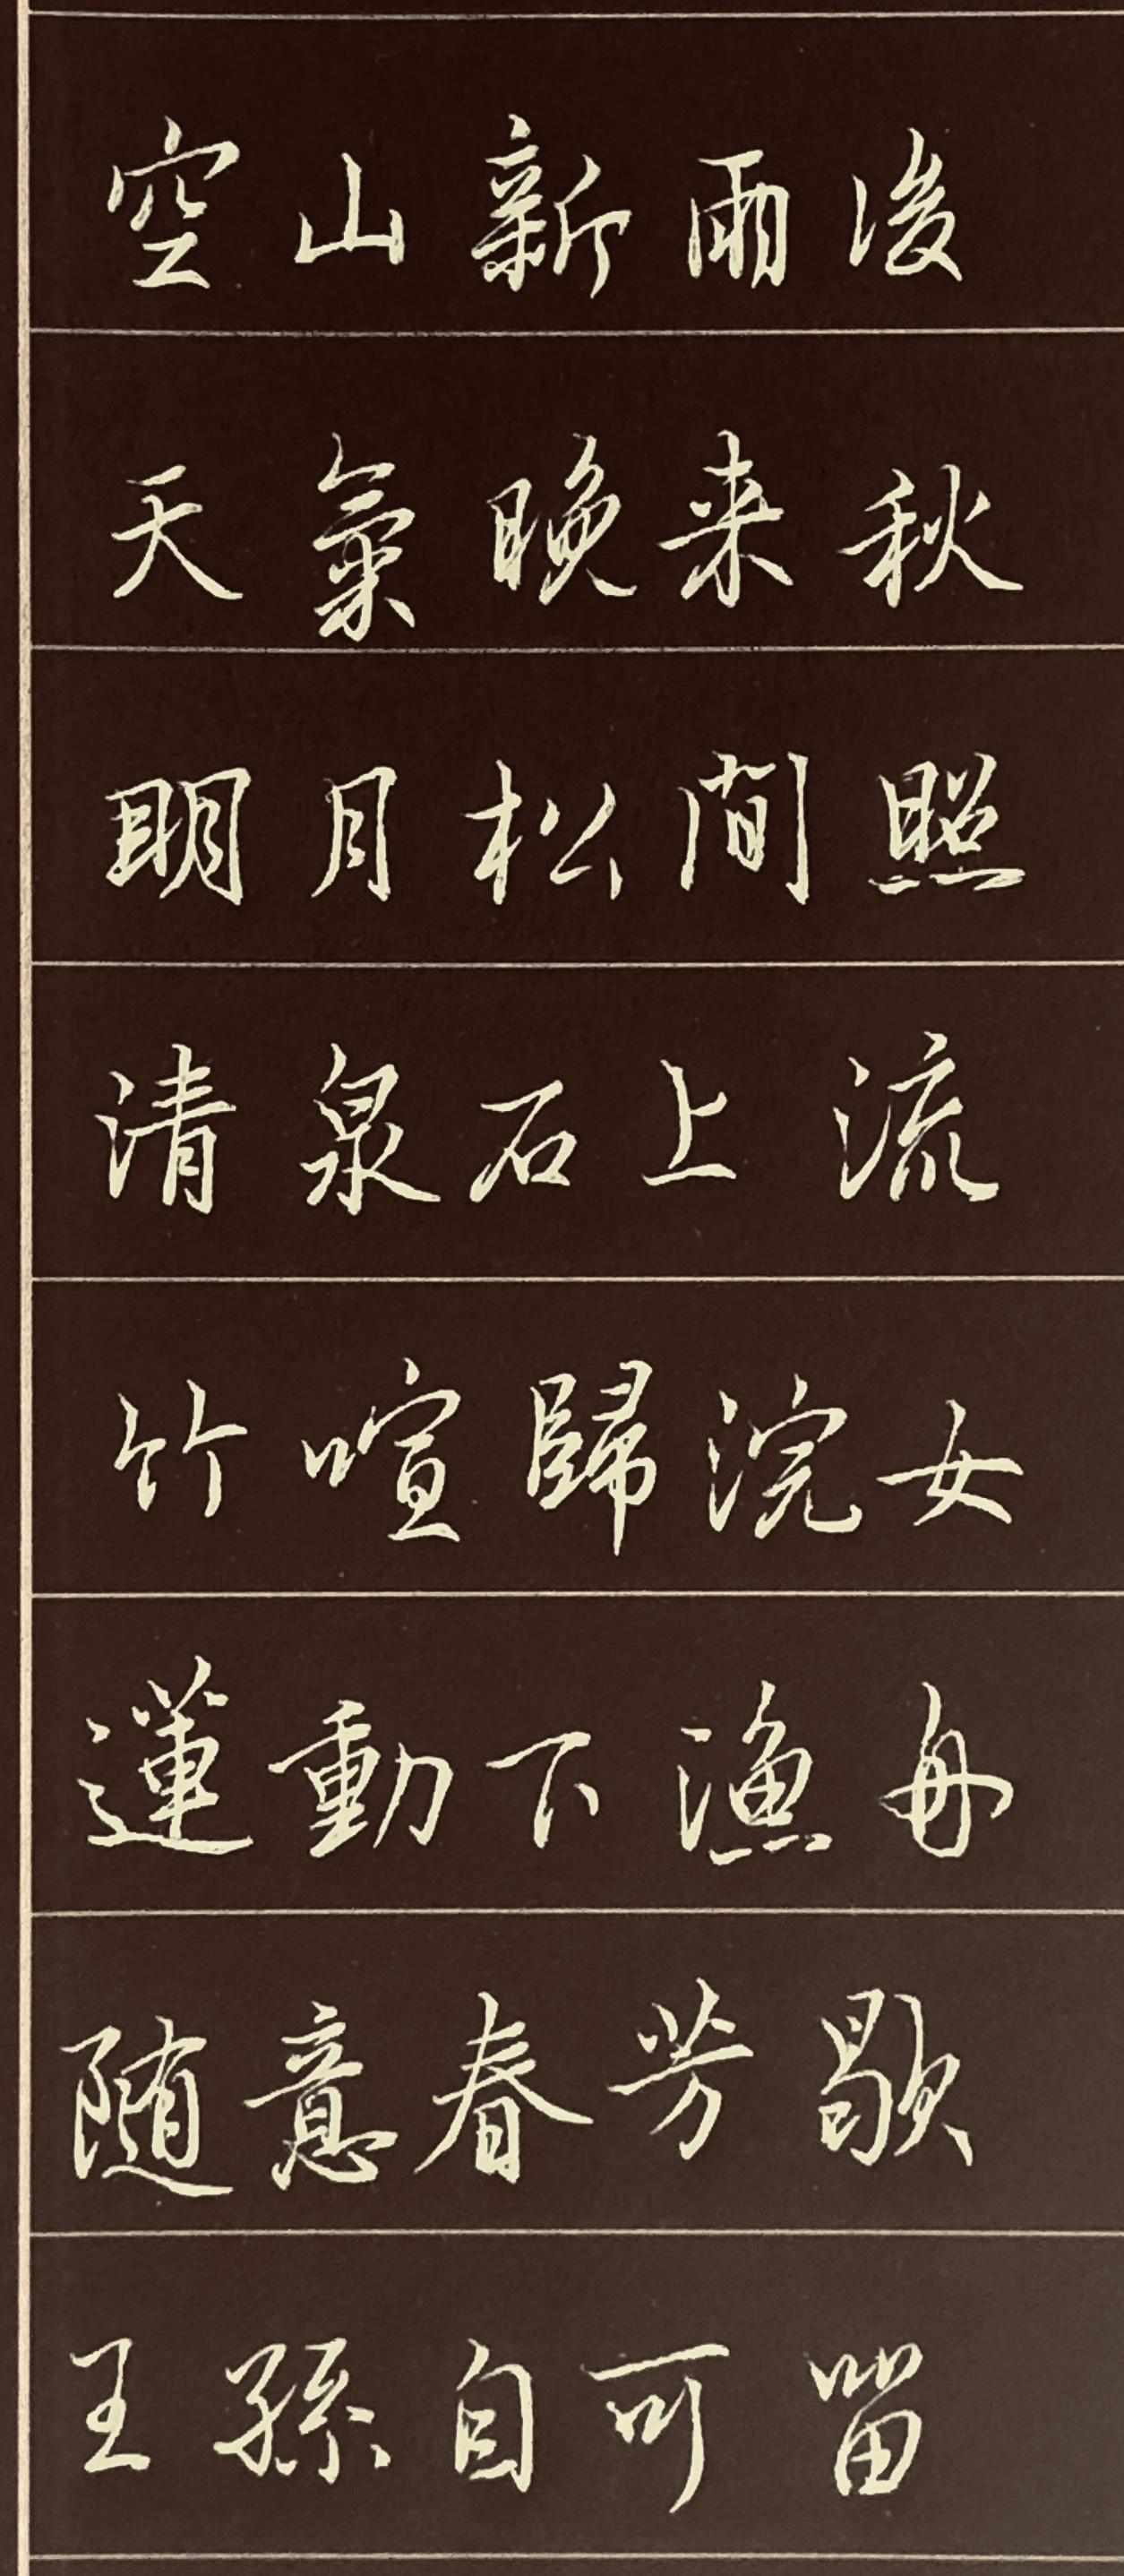 空山新雨後
天氣晚来秋
明月松間照
清泉石上流
竹喧歸浣女
蓮動下漁舟
随意春芳歇
王孫自可留